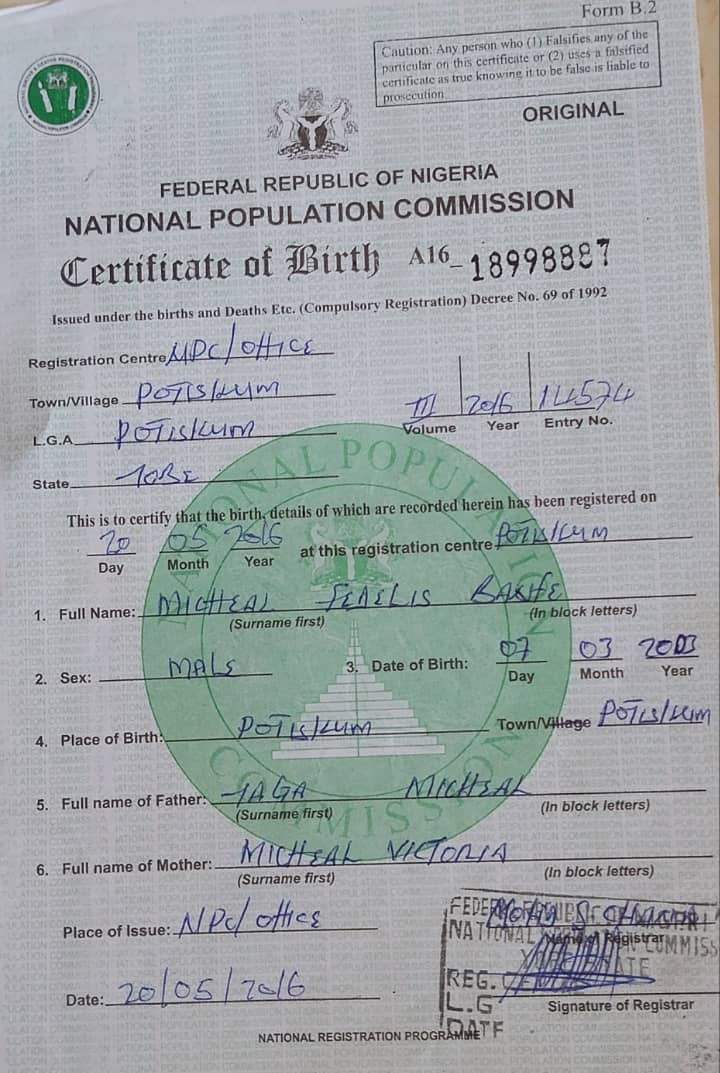 Form B.2
Caution: Any person who (1) Falsifies any of the
particular on this certificate or (2) uses a falsified
certificate as true knowing it to be false is liable to
prosecution
ORIGINAL
FEDERAL REPUBLIC OF NIGERIA
NATIONAL POPULATION COMMISSION
Certificate of Birth A16_ 18998887
Issued under the births and Deaths Etc. (Compulsory Registration) Decree No. 69 of 1992
Registration Centre NPC/OFFICE
Town/Village POTISKUM
III 2016 14574
Volume Year Entry No.
L.G.A. POTISKUM
State YOBE
This is to certify that the birth, details of which are recorded herein has been registered on
20 05 2016 at this registration centre POTISKUM
Day Month Year
1. Full Name: MICHEAL BAKHE
(Surname first) (In block letters)
2. Sex: MALE 3. Date of Birth: 07 03 2003
Day Month Year
4. Place of Birth: POTISKUM Town/Village POTISKUM
5. Full name of Father: YAGA MICHEAL
(Surname first) (In block letters)
6. Full name of Mother: MICHEAL VICTORIA
(Surname first) (In block letters)
Place of Issue: NPC/office
Name of Registrar
Date: 20/05/2016
REG.
L.G
DATE
Signature of Registrar
NATIONAL REGISTRATION PROGRAMME
NATIONAL POPULATION COMMISSION